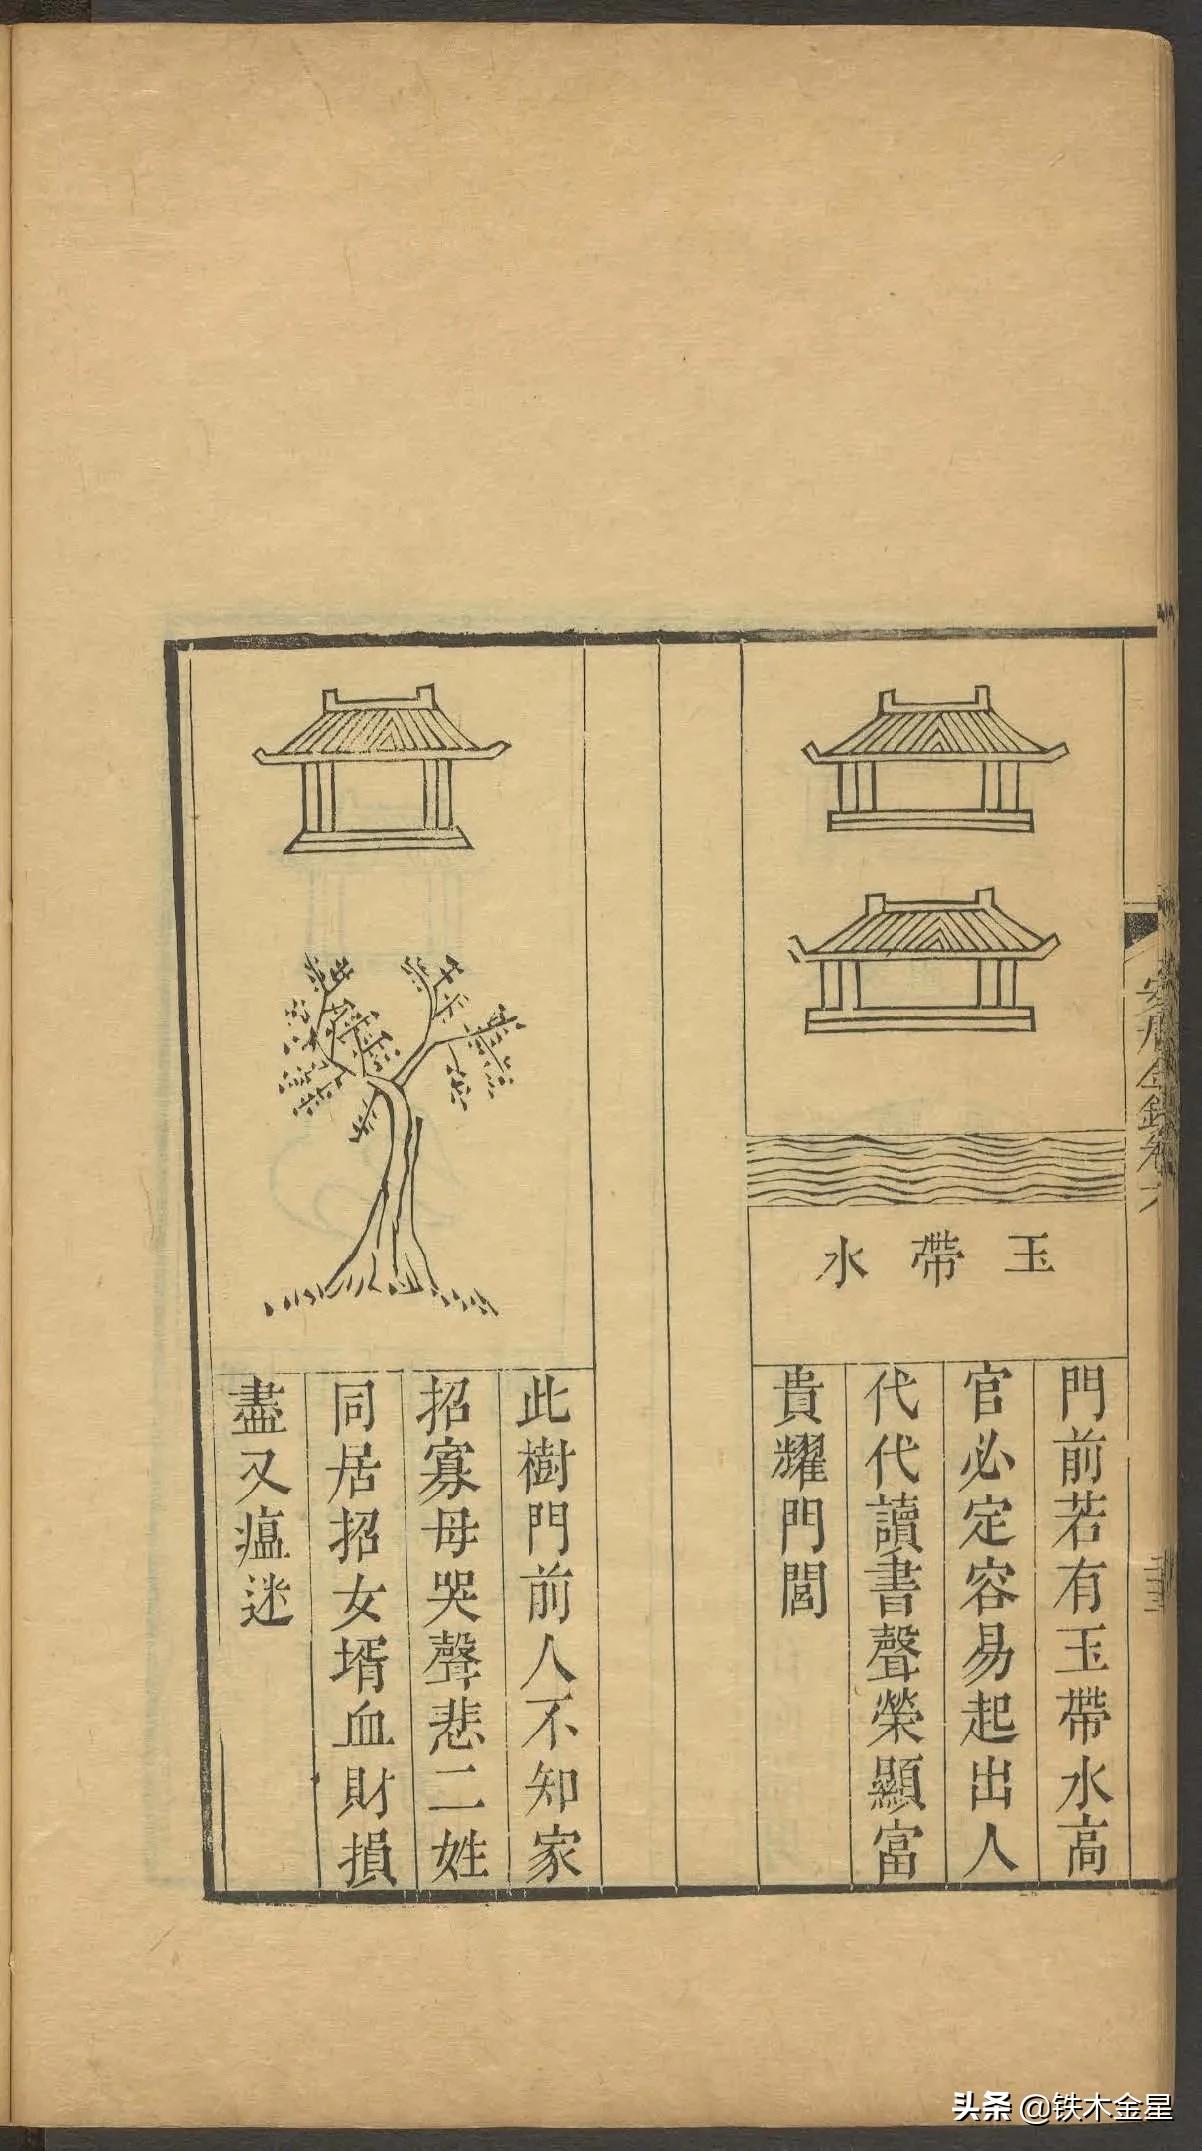 安居金鏡卷六
玉帶水
門前若有玉帶水高
官必定容易起出人
代代讀書聲榮顯富
貴耀門閭
此樹門前人不知家
招寡母哭聲悲二姓
同居招女壻血財損
盡又瘟迷
头条 @铁木金星